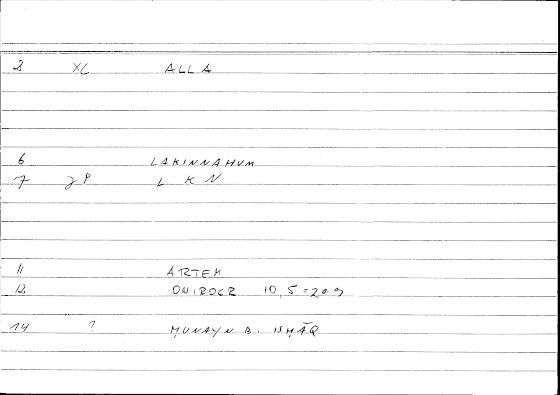 3 XL ALLA
6 LAKINNAHUM
7 JP L K N
11 ARTEM
12 ONIROCR 10,5 = 209
14 ? ḤUNAYN B. ISḤĀQ